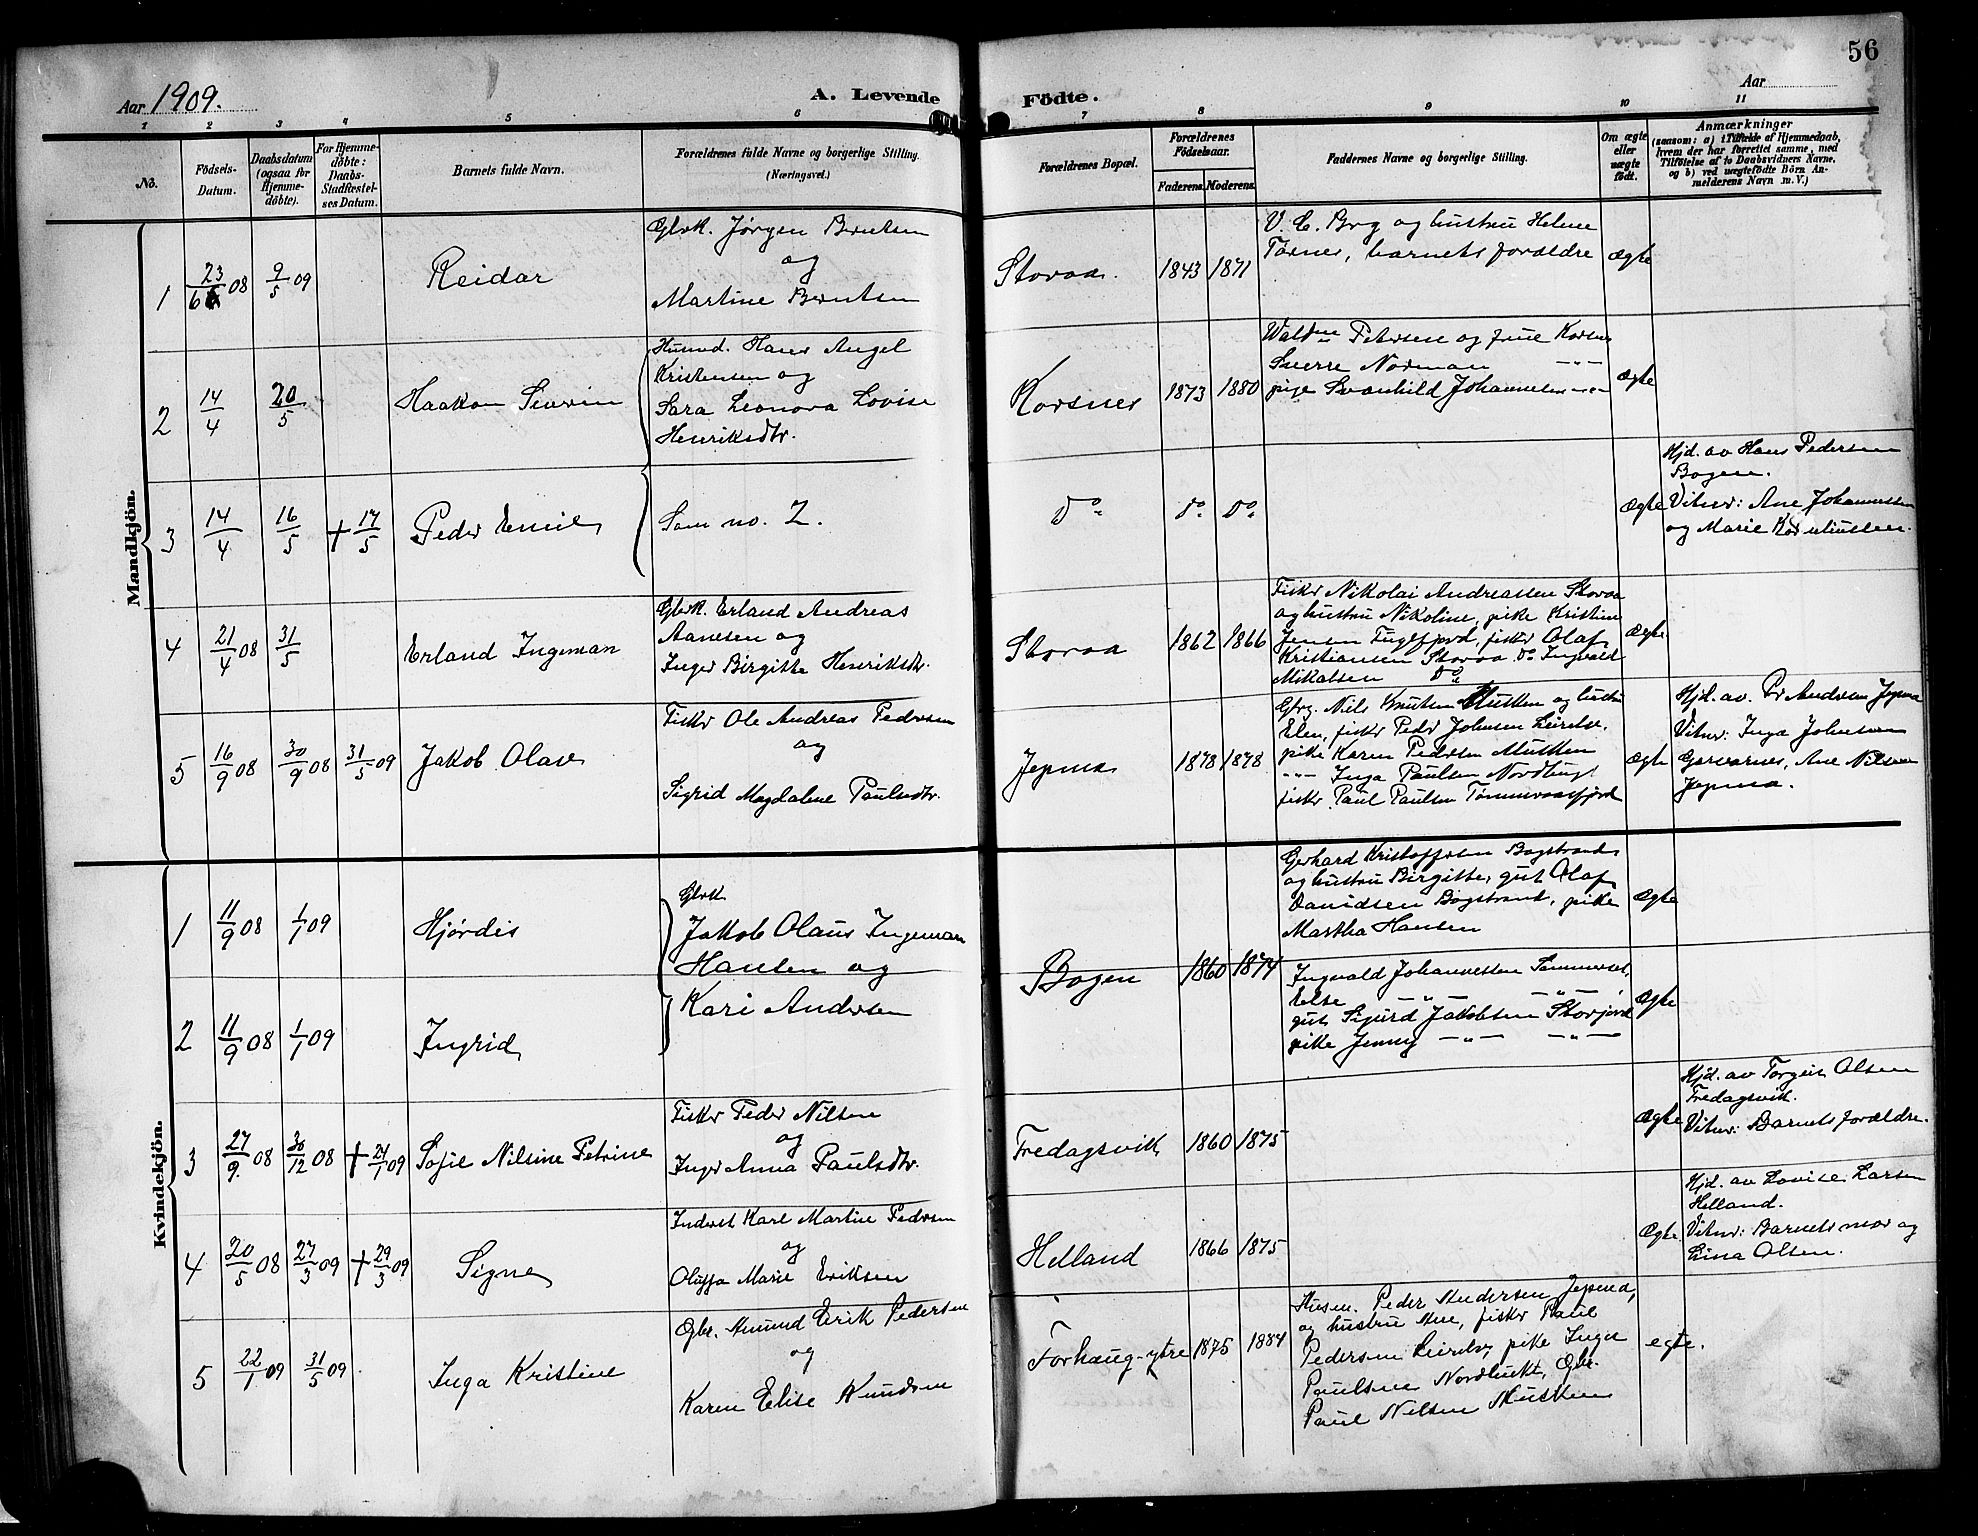 56
Aar 1909.
A. Levende Födte.
Aar
1 2 3 4 5 6 7 8 9 10 11
No.
Födsels-
Datum.
Daabsdatum
(ogsaa for
Hjemme-
döbte).
For Hjemme-
döbte:
Daabs-
Stadfæstel-
ses Datum.
Barnets fulde Navn.
Forældrenes fulde Navne og borgerlige Stilling.
(Næringsvei.)
Forældrenes Bopæl.
Forældrenes
Födselsaar.
Faderens. Moderens.
Faddernes Navne og borgerlige Stilling.
Om ægte
eller
uægte
födt.
Anmærkninger
(saasom: a) i Tilfælde af Hjemmedaab,
hvem der har forrettet samme, med
Tilföielse af to Daabsvidners Navne,
og b) ved uægtefödte Börn An-
melderens Navn m. V.)
Mandkjön.
1
23/6 08
9/5 09
Reidar
Gbrk. Jørgen Berntsen
og
Martine Berntsen
Storaa
1843 1871
V. C. Brg og hustru Helene
Tørnes, barnets forældre
Ægte
2
14/4
20/5
Haakon Severin
Husmd. Hans Angel
Kristensen og
Sara Leonora Lovise
Henriksdtr.
Korsnes
1873 1880
Petersen og frue Korsnes
Sverre Norman -"-
pige Svanhild Johannesen -"-
Ægte
3
14/4
16/5
† 17/5
Peder Emil
Som no. 2.
Do
Do Do
Ægte
Hjd. av Hans Pedersen
Bogen.
Vitner: Ane Johannessen
og Marie
4
21/4 08
31/5
Erland Ingeman
Gbrk. Erland Andreas
Aanesen og
Inger Birgitte Henriksdtr.
Storaa
1862 1866
Fisker Nikolai Andreassen Storaa
og hustru Nikoline, pike Kristine
Jensen Fuglfjord, fisker Olaf
Kristiansen Storaa, Do Ingvald
Mikalsen Do
Ægte
5
16/9 08
30/9 08
31/5 09
Jakob Olav
Fisker Ole Andreas Pedersen
og
Sigrid Magdalene Paulsdtr.
Jepma
1878 1878
Gbrg. Nils Knutsen Musken og hustru
Elen, fisker Peder Johnsen Leirelv.
pike Karen Pedersen Musken
-"- Inga Paulsen Nordbugt
fisker Paul Paulsen Tømmeraasfjord
Ægte
Hjd. av. Pr Andersen Jepma
Vitner: Inga Johnsen
Ane Nilsen
Jepma.
Kvindekjön.
1
11/9 08
1/1 09
Hjørdis
Gbrk
Jakob Olaus Ingeman
Hansen og
Kari Andersen
Bogen
1860 1874
Gerhard Kristoffersen Bogstrand
og hustru Birgitte, gut Olaf
Davidsen Bogstrand, pike
Martha Hansen
Ægte
2
11/9 08
1/1 09
Ingrid
Ingvald Johannessen Sommerset,
Else -"- -"-,
gut Sigurd Jakobsen Storjord
pike Jenny -"- -"-
Ægte
3
27/9 08
30/12 08
† 24/1 09
Sofie Nilsine Petrine
Fisker Peder Nilsen
og
Inger Anna Paulsdtr.
Fredagsvik
1860 1875
Ægte
Hjd. av Torgeir Olsen
Fredagsvik.
Vitner: Barnets forældre.
4
20/5 08
27/3 09
† 29/3 09
Signe
Inderst Karl Martin Pedersen
og
Oluffa Marie Eriksen
Helland
1866 1875
Ægte
Hjd. av Lovise Larsen
Helland.
Vitner: Barnets mor og
Lina Olsen.
5
22/1 09
31/5 09
Inga Kristine
Gbr. Amund Erik Pedersen
og
Karen Elise Knudsen
Forhaug-ytre
1875 1884
Husm. Peder Andersen Jepma,
og hustru Ane, fisker Paul
Pedersen Leirelv, pike Inga
Paulsen Nordbukt, Gbr.
Paul Nilsen Musken
egte.